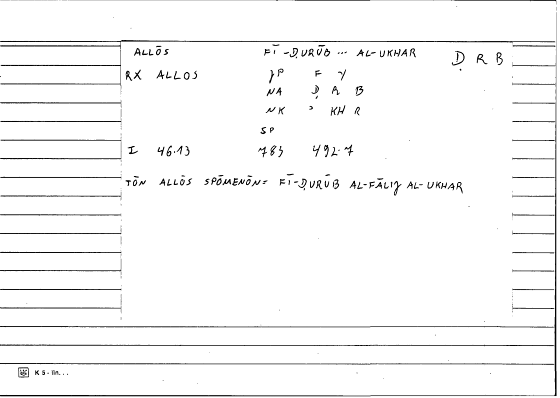 ALLŌS FĪ-ḌURŪB ... AL-UKHAR Ḍ R B
RX ALLOS JP F Y
NA Ḍ R B
NK ʾ KH R
SP
I 46.13 783 492.7
TŌN ALLŌS SPŌMENŌN= FĪ-ḌURŪB AL-FĀLIJ AL-UKHAR
K 5 - lin...